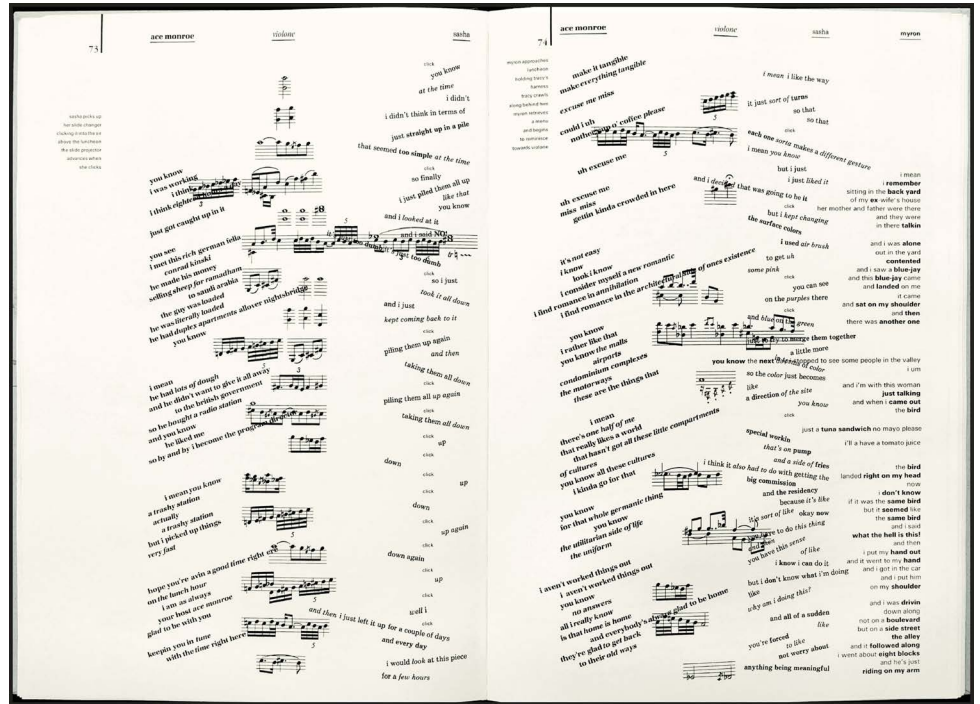 73
ace monroe
violone
sasha
sasha picks up
her slide changer
clicking it into the air
above the luncheon
the slide projector
advances when
she clicks
you know
i was working
i think
i think eighteen
just got caught up in it
you see
i met this rich german fella
conrad kinski
he made his money
selling sheep for romdham
to saudi arabia
the guy was loaded
he was literally loaded
he had duplex apartments allover nightsbridge
you know
i mean
he had lots of dough
and he didn't want to give it all away
to the british government
so he bought a radio station
and you know
he liked me
so by and by i become the program director
i mean you know
a trashy station
actually
a trashy station
but i picked up things
very fast
hope you're avin a good time right ere
on the lunch hour
i am as always
your host ace monroe
glad to be with you
keepin you in tune
with the time right here
5
5
5
5
3
5
5
5
5
click
you know
at the time
i didn't
i didn't think in terms of
just straight up in a pile
that seemed too simple at the time
click
so finally
i just piled them all up
like that
you know
and i looked at it
and i said NO!
it's too dumb it's just too dumb
click
so i just
took it all down
click
and i just
kept coming back to it
click
piling them up again
and then
click
taking them all down
click
piling them all up again
click
taking them all down
click
up
click
down
click
up
click
down
click
up again
click
down again
click
up
click
well i
and then i just left it up for a couple of days
and every day
i would look at this piece
for a few hours
74
ace monroe
violone
sasha
myron
myron approaches
luncheon
holding tracy's
harness
tracy crawls
along behind him
myron retrieves
a menu
and begins
to reminisce
towards violone
make it tangible
make everything tangible
excuse me miss
could i uh
nother cup o' coffee please
uh excuse me
uh excuse me
miss miss
gettin kinda crowded in here
it's not easy
i know
look i know
i consider myself a new romantic
i find romance in annihilation
i find romance in the architectural side of ones existence
you know
i rather like that
you know the malls
airports
condominium complexes
the motorways
these are the things that
i mean
there's one half of me
that really likes a world
that hasn't got all these little compartments
of cultures
you know all these cultures
i kinda go for that
you know
for that whole germanic thing
you know
the utilitarian side of life
the uniform
i aven't worked things out
i aven't worked things out
you know
no answers
all i really know
is that home is home
and everybody's always glad to be home
they're glad to get back
to their old ways
5
5
5
5
i mean i like the way
it just sort of turns
so that
so that
click
each one sorta makes a different gesture
i mean you know
but i just
i just liked it
and i decided that was going to be it
click
but i kept changing
the surface colors
i used air brush
to get uh
some pink
click
you can see
on the purples there
click
and blue on the green
just to try to merge them together
a little more
in terms of color
so the color just becomes
like
a direction of the site
you know
click
special workin
that's on pump
and a side of fries
i think it also had to do with getting the
big commission
and the residency
because it's like
it's sort of like okay now
you have to do this thing
and then
you have this sense
of like
i know i can do it
but i don't know what i'm doing
like
why am i doing this?
and all of a sudden
like
you're forced
to like
not worry about
anything being meaningful
i mean
i remember
sitting in the back yard
of my ex-wife's house
her mother and father were there
and they were
in there talkin
and i was alone
out in the yard
contented
and i saw a blue-jay
and this blue-jay came
and landed on me
it came
and sat on my shoulder
and then
there was another one
you know the next day i stopped to see some people in the valley
i um
and i'm with this woman
just talking
and when i came out
the bird
just a tuna sandwich no mayo please
i'll a have a tomato juice
the bird
landed right on my head
now
i don't know
if it was the same bird
but it seemed like
the same bird
and i said
what the hell is this!
and then
i put my hand out
and it went to my hand
and i got in the car
and i put him
on my shoulder
and i was drivin
down along
not on a boulevard
but on a side street
the alley
and it followed along
i went about eight blocks
and he's just
riding on my arm